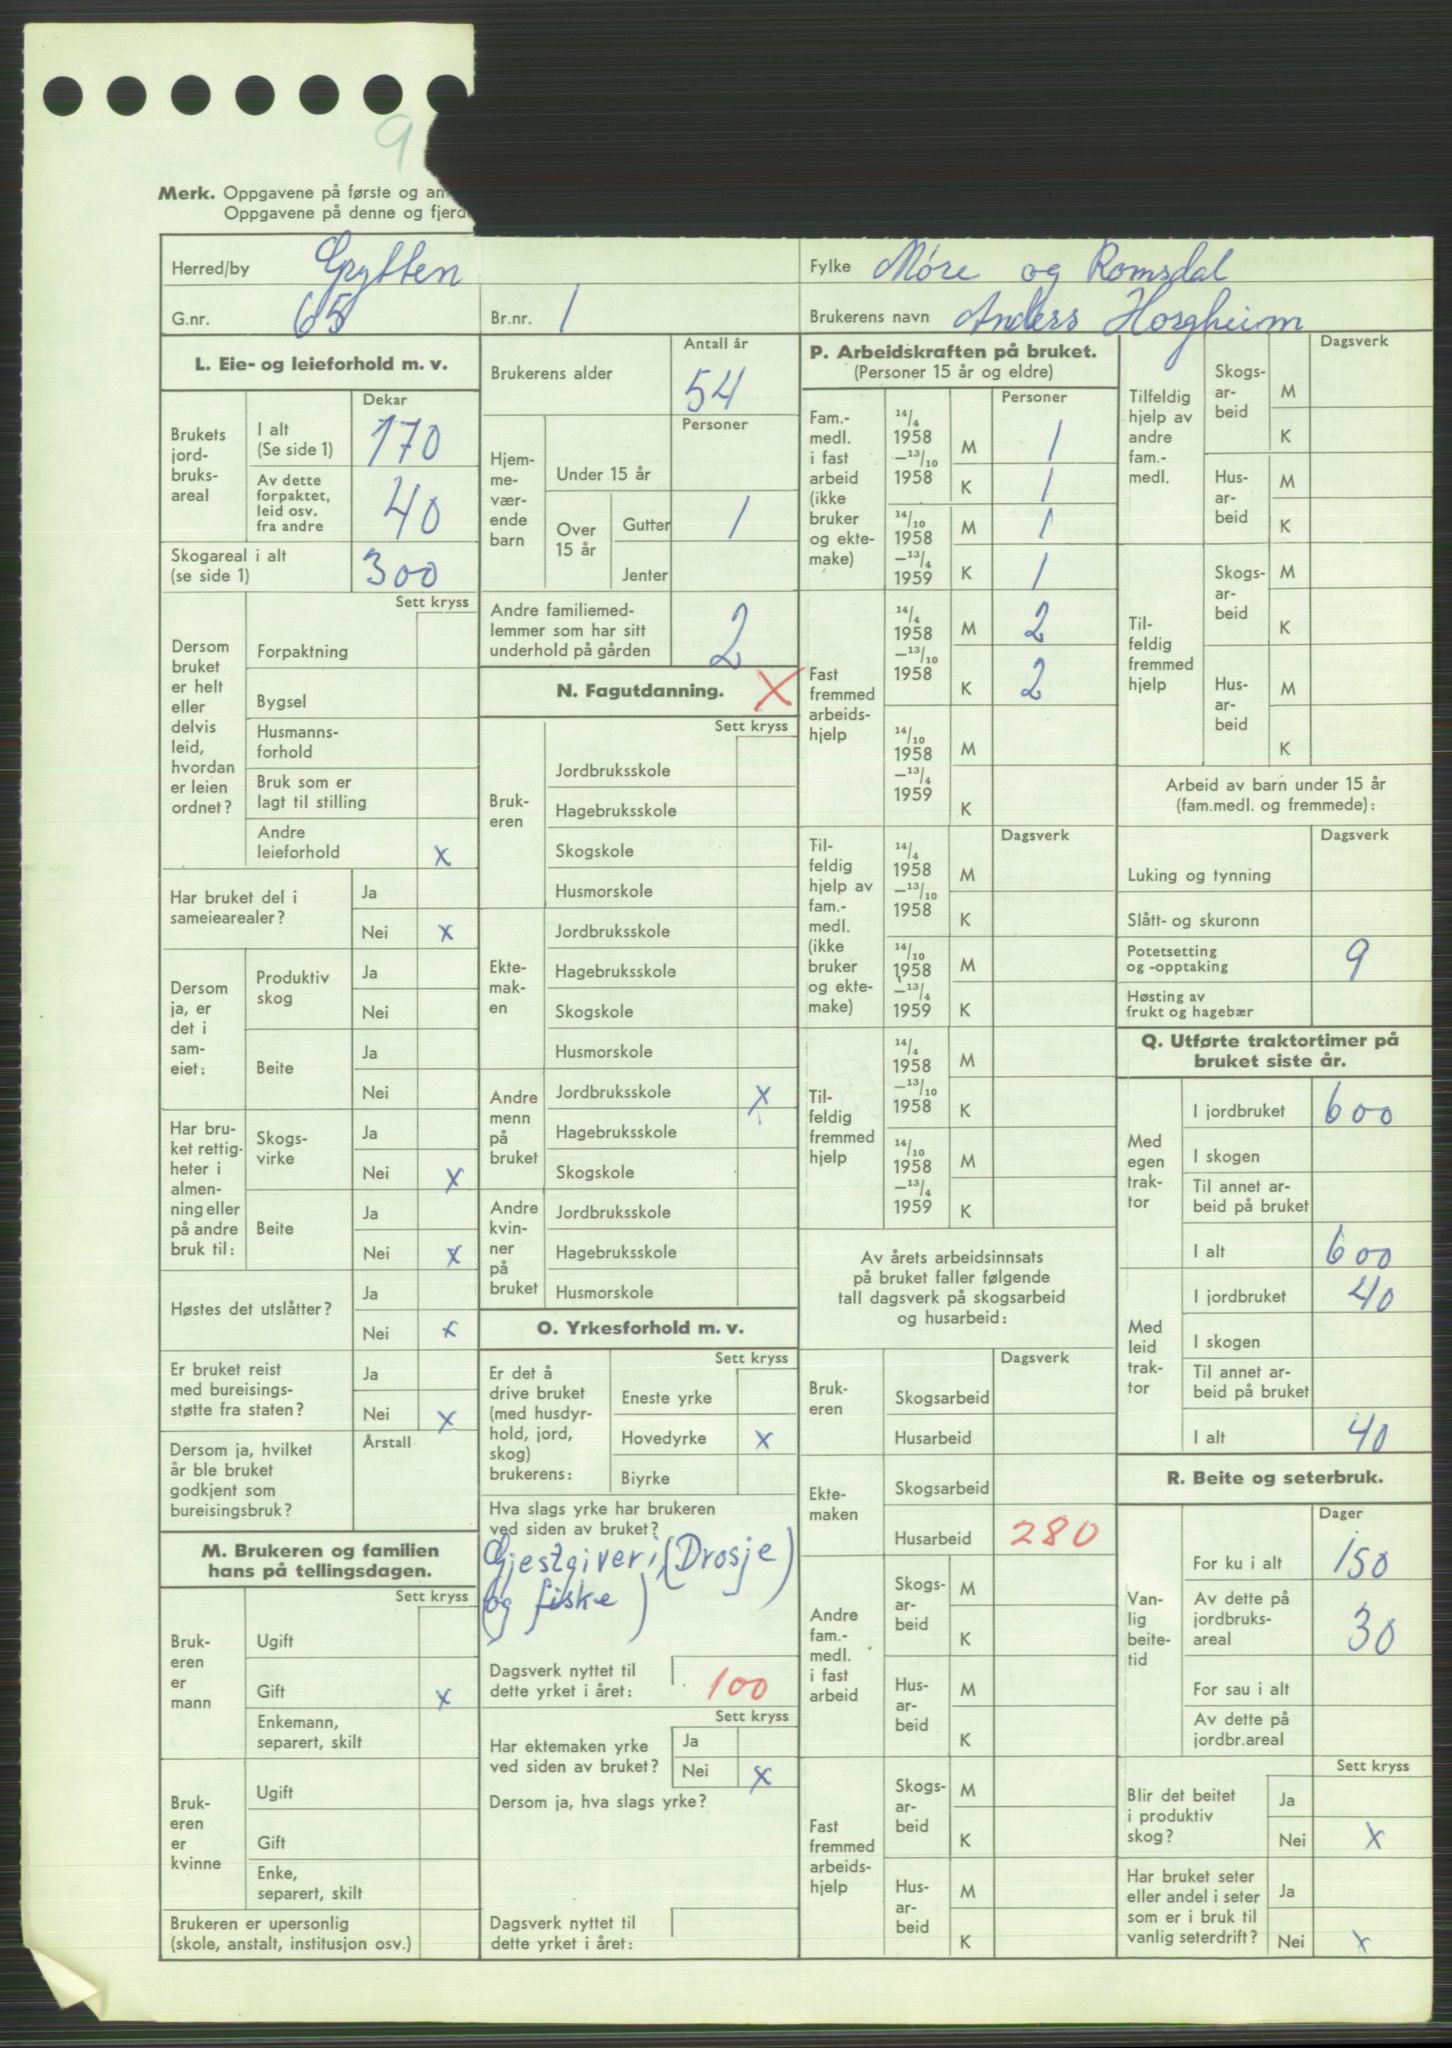 9
Merk. Oppgavene på første og an
Oppgavene på denne og fjerd
Herred/by Grytten
Fylke Møre og Romsdal
G.nr. 65
Br.nr. 1
Brukerens navn Anders Horgheim
L. Eie- og leieforhold m. v.
Dekar
Brukets jord-bruks-areal
I alt (Se side 1) 170
Av dette forpaktet, leid osv. fra andre 40
Skogareal i alt (se side 1) 300
Sett kryss
Dersom bruket er helt eller delvis leid, hvordan er leien ordnet?
Forpaktning
Bygsel
Husmanns-forhold
Bruk som er lagt til stilling
Andre leieforhold x
Har bruket del i sameiearealer?
Ja
Nei x
Dersom ja, er det i sam-eiet:
Produktiv skog
Ja
Nei
Beite
Ja
Nei
Har bru-ket rettig-heter i almen-ning eller på andre bruk til:
Skogs-virke
Ja
Nei x
Beite
Ja
Nei x
Høstes det utslåtter?
Ja
Nei x
Er bruket reist med bureisings-støtte fra staten?
Ja
Nei x
Dersom ja, hvilket år ble bruket godkjent som bureisingsbruk?
Årstall
M. Brukeren og familien hans på tellingsdagen.
Sett kryss
Bruk-eren er mann
Ugift
Gift x
Enkemann, separert, skilt
Bruk-eren er kvinne
Ugift
Gift
Enke, separert, skilt
Brukeren er upersonlig (skole, anstalt, institusjon osv.)
Antall år
Brukerens alder 54
Personer
Hjem-me-vær-ende barn
Under 15 år
Over 15 år
Gutter 1
Jenter
Andre familiemed-lemmer som har sitt underhold på gården 2
N. Fagutdanning. X
Sett kryss
Bruk-eren
Jordbruksskole
Hagebruksskole
Skogskole
Husmorskole
Ekte-mak-en
Jordbruksskole
Hagebruksskole
Skogskole
Husmorskole
Andre menn på bruket
Jordbruksskole x
Hagebruksskole
Skogskole
Andre kvin-ner på bruket
Jordbruksskole
Hagebruksskole
Husmorskole
O. Yrkesforhold m. v.
Sett kryss
Er det å drive bruket (med husdyr-hold, jord, skog) brukerens:
Eneste yrke
Hovedyrke x
Biyrke
Hva slags yrke har brukeren ved siden av bruket?
Gjestgiveri (Drosje)
(og fiske)
Dagsverk nyttet til dette yrket i året: 100
Sett kryss
Har ektemaken yrke ved siden av bruket?
Ja
Nei x
Dersom ja, hva slags yrke?
Dagsverk nyttet til dette yrket i året:
P. Arbeidskraften på bruket.
(Personer 15 år og eldre)
Personer
Fam.-medl. i fast arbeid (ikke bruker og ekte-make)
14/4 1958 –13/10 1958
M 1
K 1
14/10 1958 –13/4 1959
M 1
K 1
Fast fremmed arbeids-hjelp
14/4 1958 –13/10 1958
M 2
K 2
14/10 1958 –13/4 1959
M
K
Dagsverk
Til-feldig hjelp av fam.-medl. (ikke bruker og ekte-make)
14/4 1958 –13/10 1958
M
K
14/10 1958 –13/4 1959
M
K
Til-feldig fremmed hjelp
14/4 1958 –13/10 1958
M
K
14/10 1958 –13/4 1959
M
K
Av årets arbeidsinnsats på bruket faller følgende tall dagsverk på skogsarbeid og husarbeid:
Dagsverk
Bruk-eren
Skogsarbeid
Husarbeid
Ekte-maken
Skogsarbeid
Husarbeid 280
Andre fam.-medl. i fast arbeid
Skogs-ar-beid
M
K
Hus-ar-beid
M
K
Fast fremmed arbeids-hjelp
Skogs-ar-beid
M
K
Hus-ar-beid
M
K
Dagsverk
Tilfeldig hjelp av andre fam.-medl.
Skogs-ar-beid
M
K
Hus-ar-beid
M
K
Til-feldig fremmed hjelp
Skogs-ar-beid
M
K
Hus-ar-beid
M
K
Arbeid av barn under 15 år (fam.medl. og fremmede):
Dagsverk
Luking og tynning
Slått- og skuronn
Potetsetting og -opptaking 9
Høsting av frukt og hagebær
Q. Utførte traktortimer på bruket siste år.
Med egen trak-tor
I jordbruket 600
I skogen
Til annet ar-beid på bruket
I alt 600
Med leid trak-tor
I jordbruket 40
I skogen
Til annet ar-beid på bruket
I alt 40
R. Beite og seterbruk.
Dager
Van-lig beite-tid
For ku i alt 150
Av dette på jordbruks-areal 30
For sau i alt
Av dette på jordbr.areal
Sett kryss
Blir det beitet i produktiv skog?
Ja
Nei x
Har bruket seter eller andel i seter som er i bruk til vanlig seterdrift?
Ja
Nei x